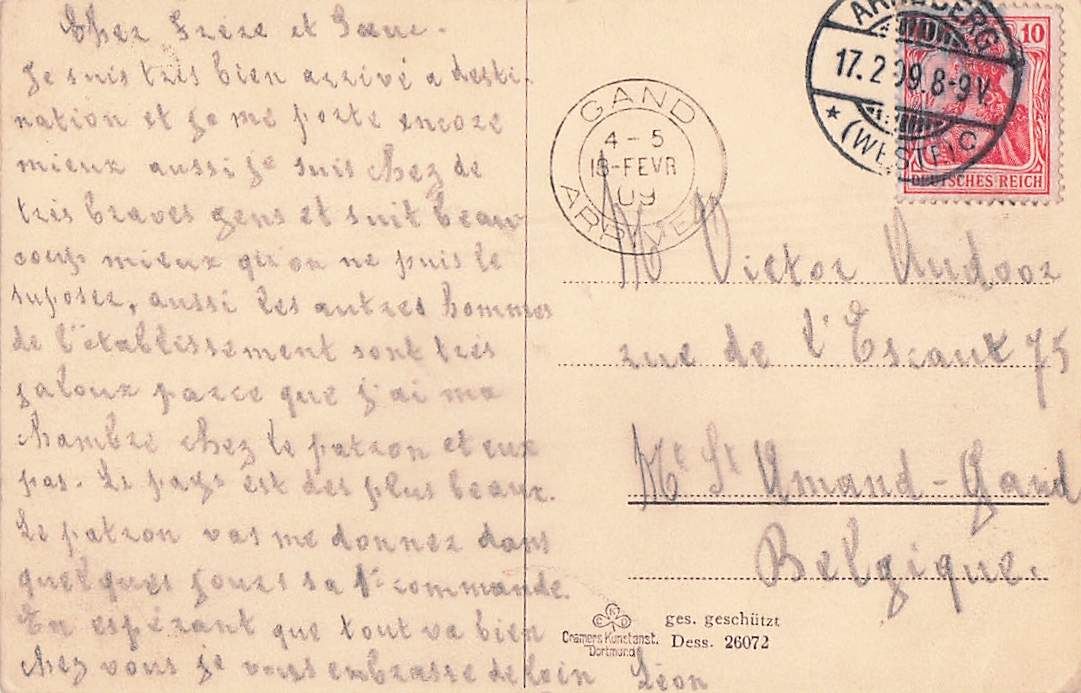 Cher Frère et Sœur.
Je suis très bien arrivé a desti-
nation et je me porte encore
mieux aussi je suis chez de
très braves gens et suit beau
coup mieux qu'on ne puis le
suposer, aussi les autres hommes
de l'établissement sont très
jaloux parce que j'ai ma
chambre chez le patron et eux
pas. Le pays est des plus beaux.
Le patron vas me donner dans
quelques jours sa 1e commande.
En espérant que tout va bien
chez vous je vous embrasse de loin Léon
GAND
4-5
18-FEVR
09
ARRIVEE
ARNSBERG
17.2.09.8-9V.
* (WESTF) C
10
DEUTSCHES REICH
M Victor Audoor
rue de l'Escaut 75
Mt St Amand-Gand
Belgique.
Cramers Kunstanst.
Dortmund
ges. geschützt
Dess. 26072